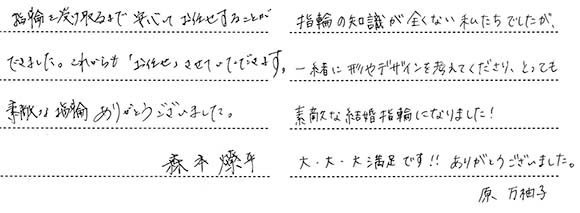 指輪を受け取るまで安心してお任せすることが
できました。これからも「お任せ」させていただきます。
素敵な指輪ありがとうございました。
森本 燦平
指輪の知識が全くない私たちでしたが、
一緒に形やデザインを考えてくださり、とっても
素敵な結婚指輪になりました！
大・大・大満足です!! ありがとうございました。
原 万柚子